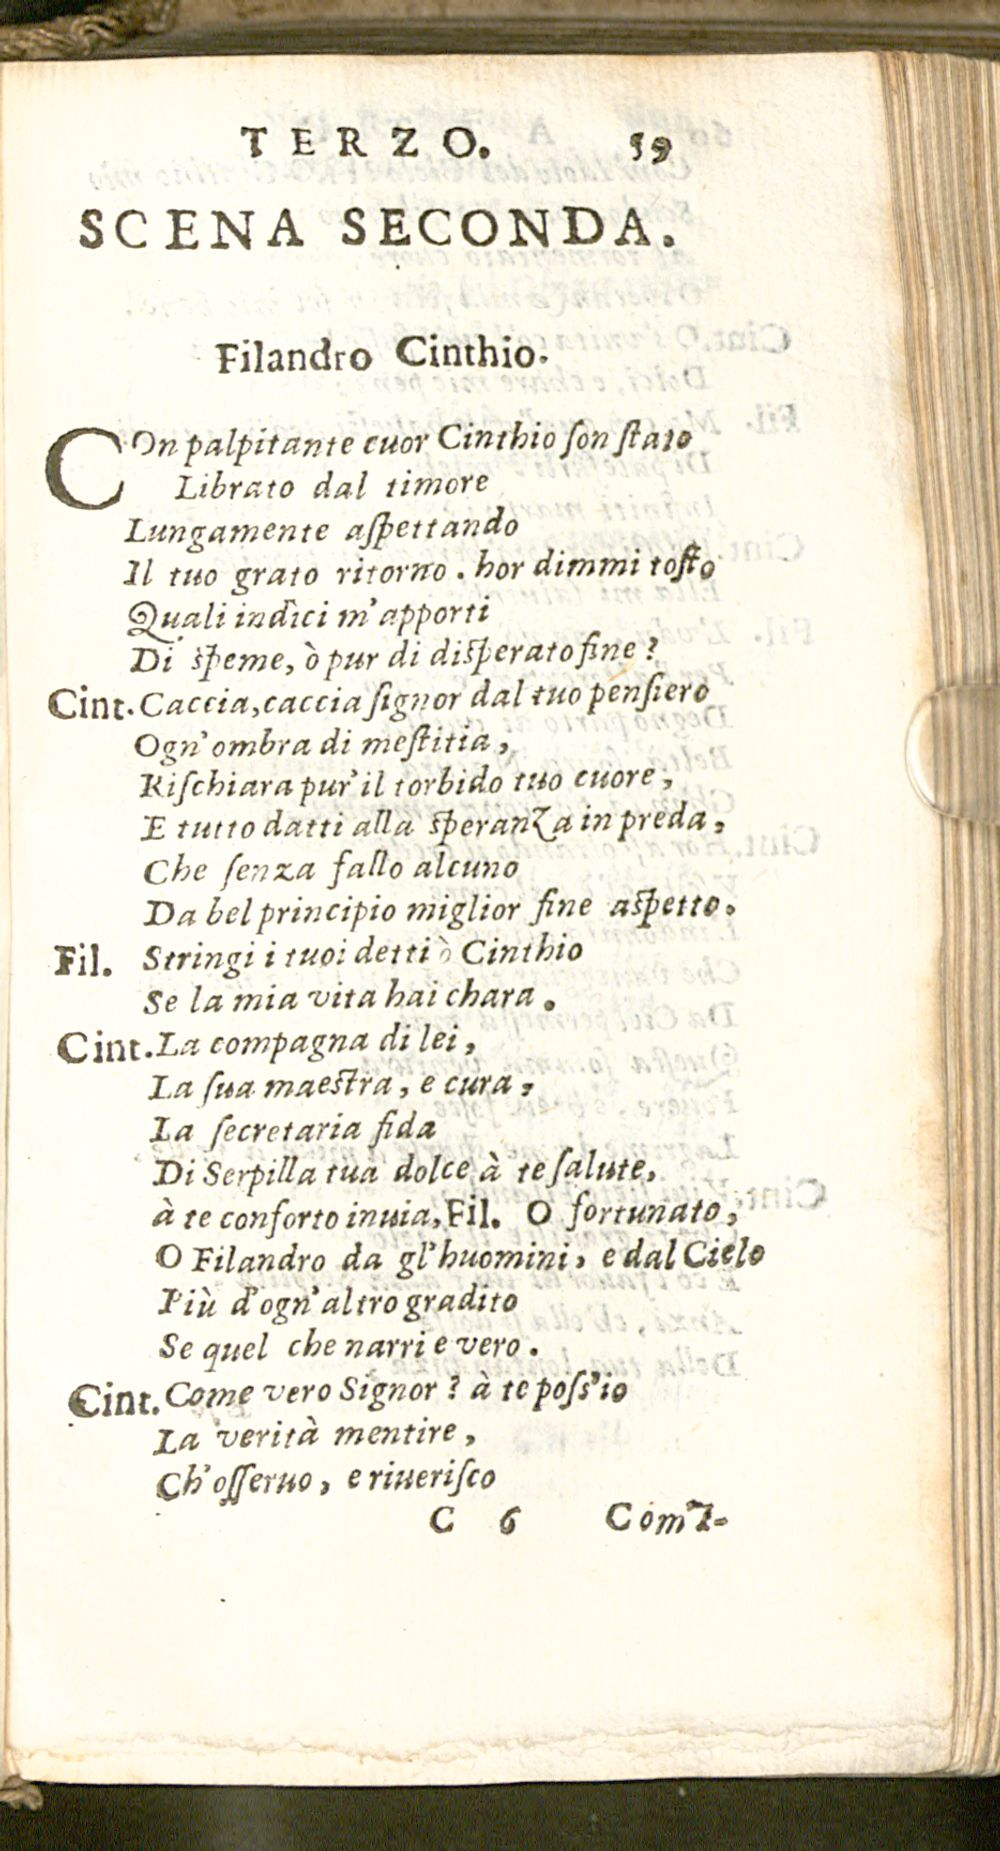 TERZO. 59
SCENA SECONDA.
Filandro Cinthio.
COn palpitante cuor Cinthio son stato
Librato dal timore
Lungamente aspettando
Il tuo grato ritorno. hor dimmi tosto
Quali indici m'apporti
Di speme, ò pur di disperato fine?
Cint. Caccia, caccia signor dal tuo pensiero
Ogn'ombra di mestitia,
Rischiara pur'il torbido tuo cuore,
E tutto datti alla speranza in preda,
Che senza fallo alcuno
Da bel principio miglior fine aspetto.
Fil. Stringi i tuoi detti ò Cinthio
Se la mia vita hai chara.
Cint. La compagna di lei,
La sua maestra, e cura,
La secretaria fida
Di Serpilla tua dolce à te salute,
à te conforto inuia, Fil. O fortunato,
O Filandro da gl'huomini, e dal Cielo
Più d'ogn'altro gradito
Se quel che narri e vero.
Cint. Come vero Signor? à te poss'io
La verità mentire,
Ch'osseruo, e riuerisco
C 6 Com'I-